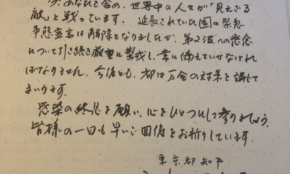 今、あなたを含め、世界中の人々が「見えざる
敵」と戦っています。延長されていた国の緊急
事態宣言は解除となりましたが、第2波への懸念
について引き続き厳重に警戒し、常に備えていかなければ
ばなりません。今後とも、都は万全の対策を講じて
まいります。
感染の終息を願い、心をひとつにして参りましょう。
皆様の一日も早い回復をお祈りしています。
東京都知事